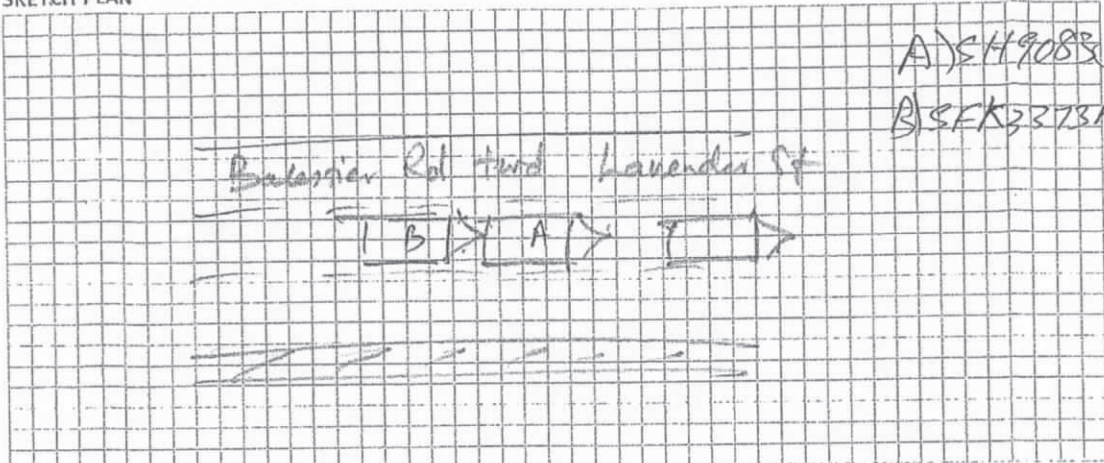 SKETCH PLAN
A) SH9083
B) SFK3373
Balestier Rd twd Lavender St
B A